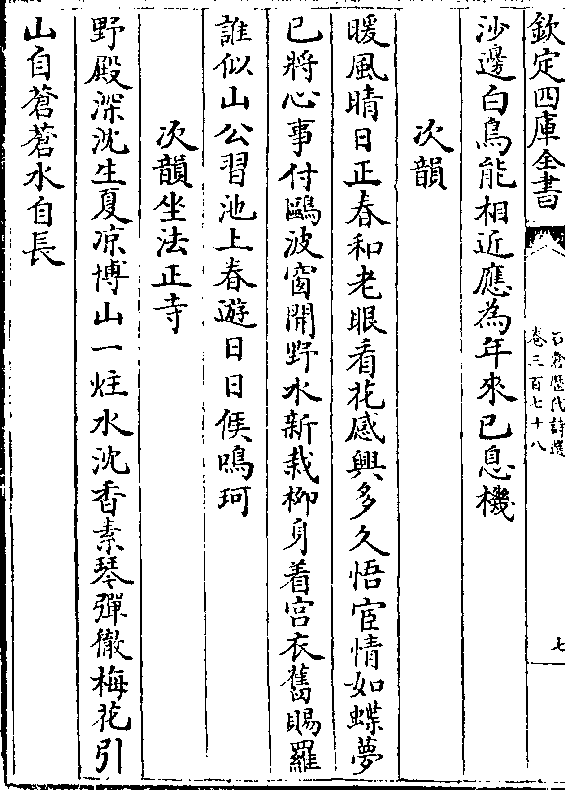 欽定四庫全書
石倉歷代詩選
卷三百七十八
七
沙邊白鳥能相近應為年來已息機
次韻
暖風晴日正春和老眼看花感興多久悟宦情如蝶夢
已將心事付鷗波窗開野水新栽柳身着宮衣舊賜羅
誰似山公習池上春遊日日候鳴珂
次韻坐法正寺
野殿深沈生夏凉博山一炷水沈香素琴彈徹梅花引
山自蒼蒼水自長